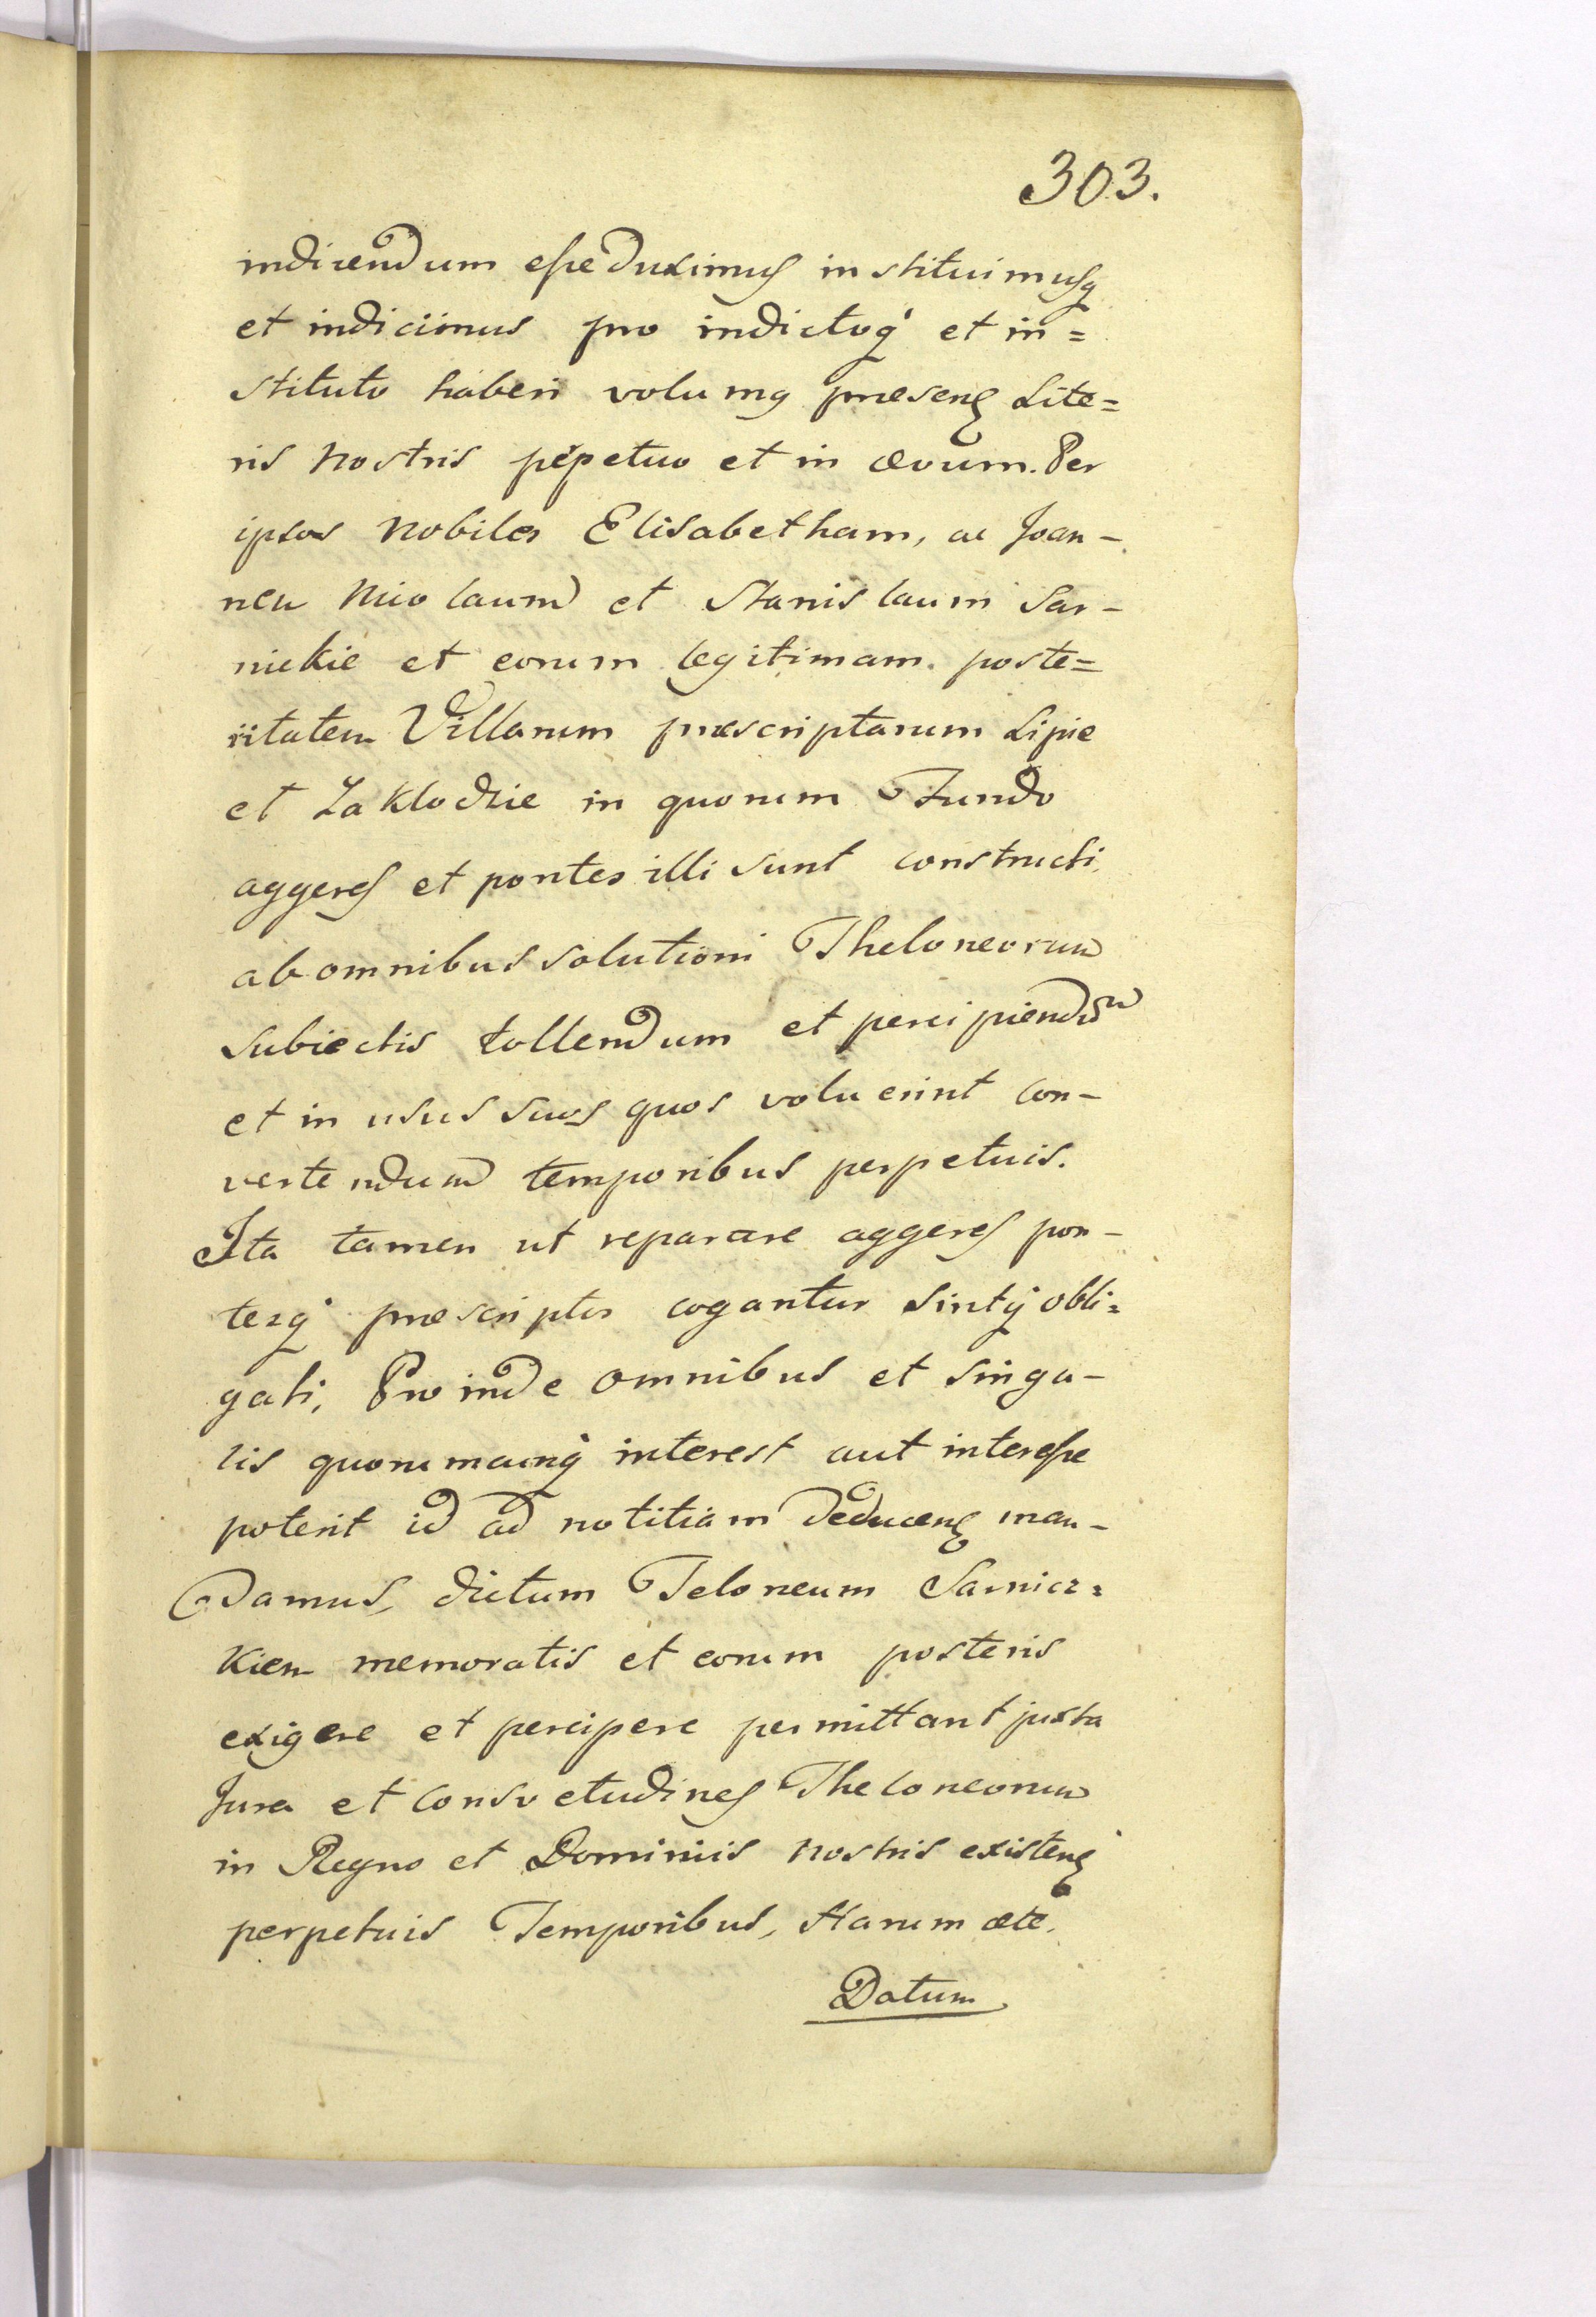 303.
indicendum esse duximus instituimusq
et indicimus pro indictoq et in=
stituto haberi volumq praesens Lite=
ris nostris ppetuo et in aevum. Per
ipsos nobiles Elisabetham, ac Joan-
nem Nicolaum et Stanislaum Sar-
nickie et eorum legitimam poste=
ritatem Villarum praescriptarum Lipie
et Zaklodzie in quorum Fundo
aggeres et pontes illi sunt constructi,
ab omnibus solutioni Theloneorum
subiectis tollendum et percipiendum
et in usus suos quos voluerint con-
vertendum temporibus perpetuis.
Ita tamen ut reparare aggeres pon-
tesq praescriptos cogantur sintq obli=
gati, Proinde omnibus et singu-
lis quorumcunq interest aut interesse
poterit id ad notitiam deducens man-
damus, dictum Teloneum Sarnicz=
kien memoratis et eorum posteris
exigere et percipere permittant juxta
Jura et consvetudines Theloneorum
in Regno et Dominiis nostris existens
perpetuis Temporibus, Harum etc.
Datum